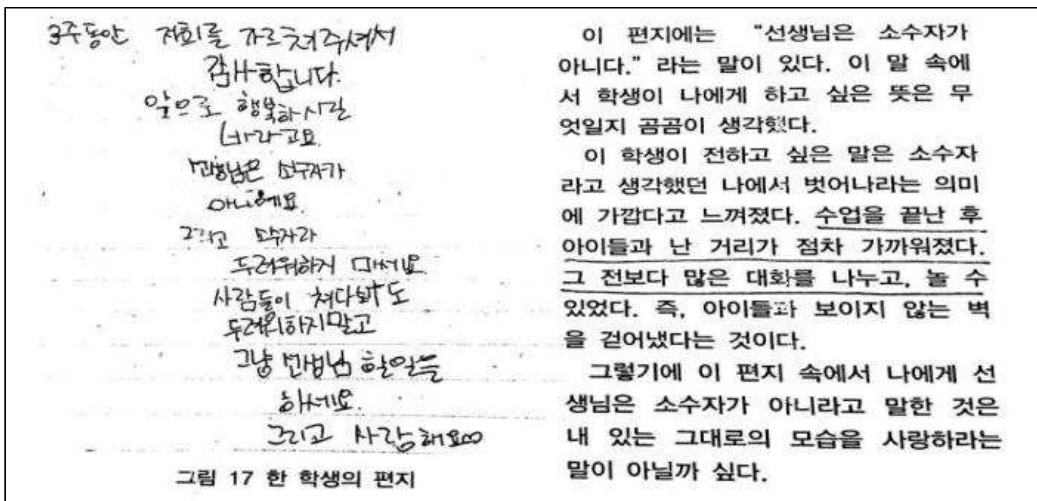 3주동안 저희를 가르쳐주셔서
감사합니다.
앞으로 행복하시길
바라고요
선생님은 소수자가
아니에요
그리고 소수자라
두려워하지 마세요
사람들이 쳐다봐도
두려워하지말고
그냥 선생님 할일을
하세요.
그리고 사랑해요∞
그림 17 한 학생의 편지
이 편지에는 "선생님은 소수자가
아니다." 라는 말이 있다. 이 말 속에
서 학생이 나에게 하고 싶은 뜻은 무
엇일지 곰곰이 생각했다.
이 학생이 전하고 싶은 말은 소수자
라고 생각했던 나에서 벗어나라는 의미
에 가깝다고 느껴졌다. 수업을 끝난 후
아이들과 난 거리가 점차 가까워졌다.
그 전보다 많은 대화를 나누고, 놀 수
있었다. 즉, 아이들과 보이지 않는 벽
을 걷어냈다는 것이다.
그렇기에 이 편지 속에서 나에게 선
생님은 소수자가 아니라고 말한 것은
내 있는 그대로의 모습을 사랑하라는
말이 아닐까 싶다.